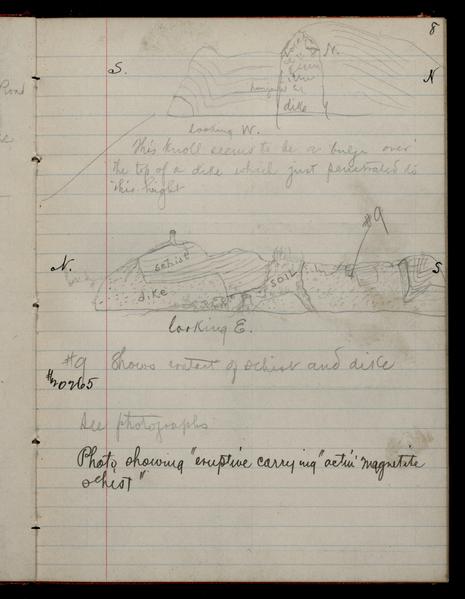 8
S.
N.
N
dike
looking W.
This knoll seems to be a bulge over
the top of a dike which just penetrated to
this hight
#9
N.
schist
dike
SOIL
S.
looking E.
#9 Shows contact of schist and dike
#20265
See photographs
Photo, showing "eruptive carrying "actin' magnetite
schist"